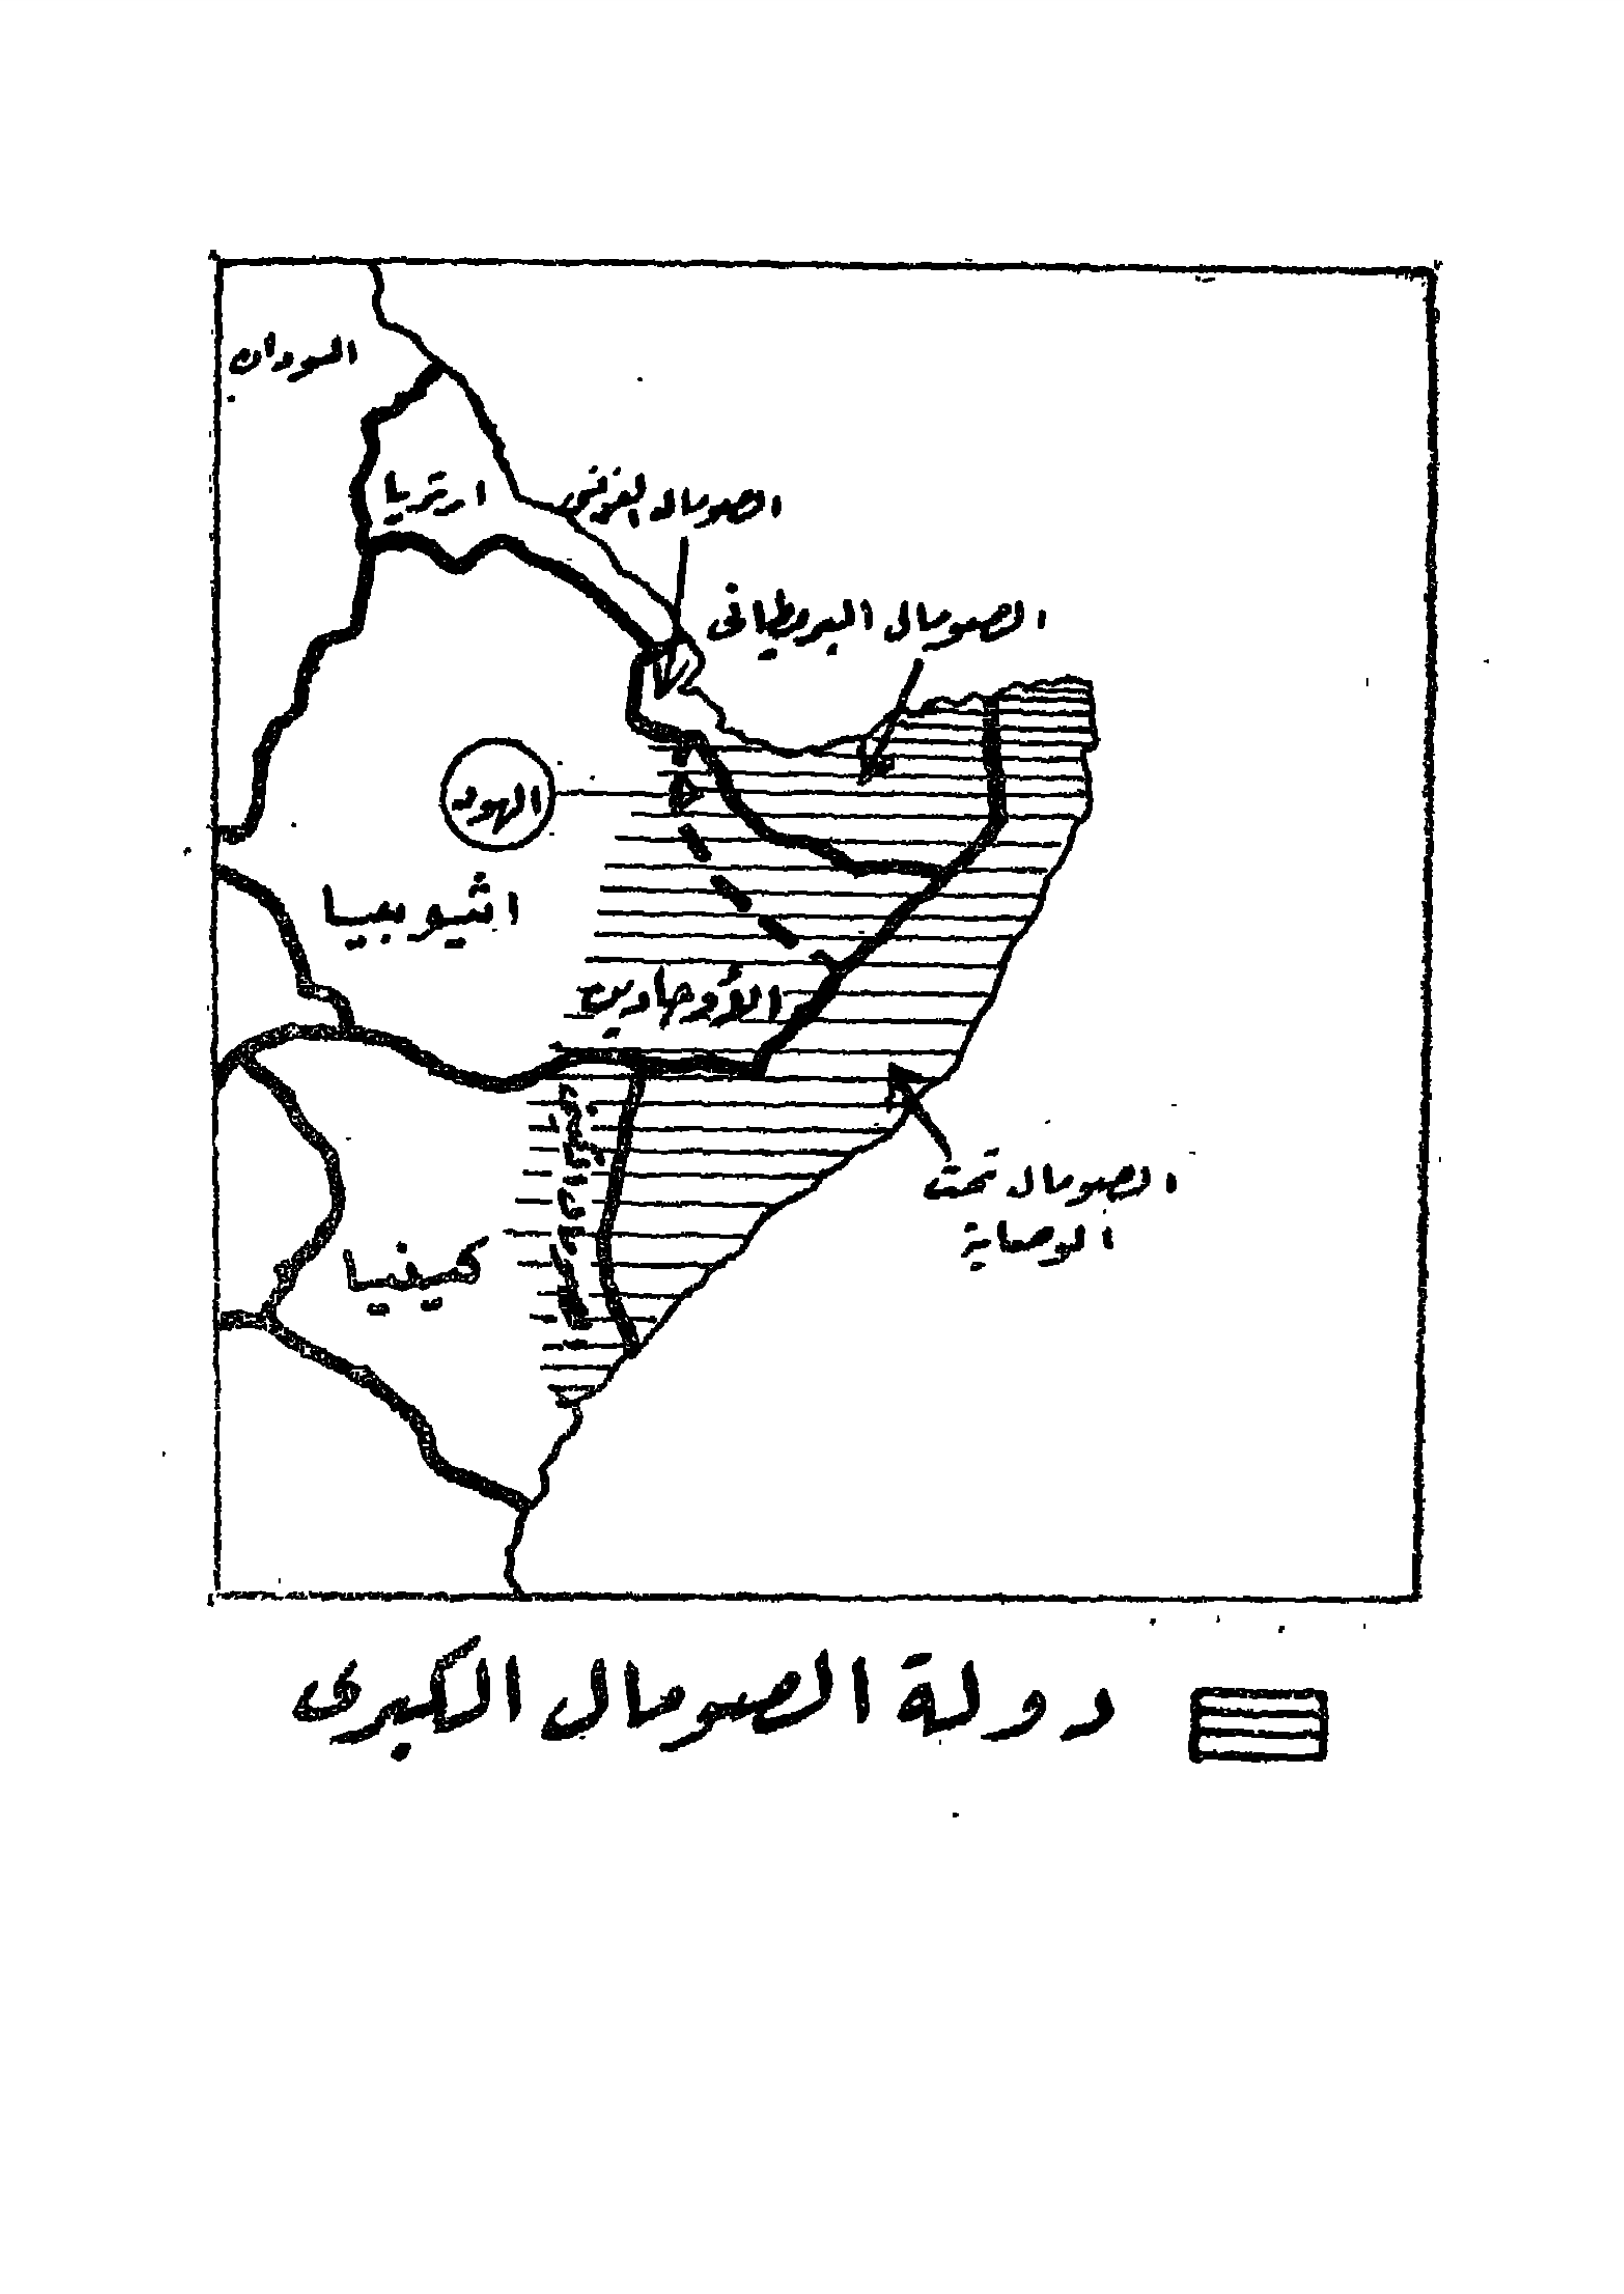 السودان
ارتريا
الصومال الفرنسى
الصومال البريطانى
الهود
اثيوبيا
الأوجادين
الصومال تحت
الوصاية
كينيا
دولة الصومال الكبرى